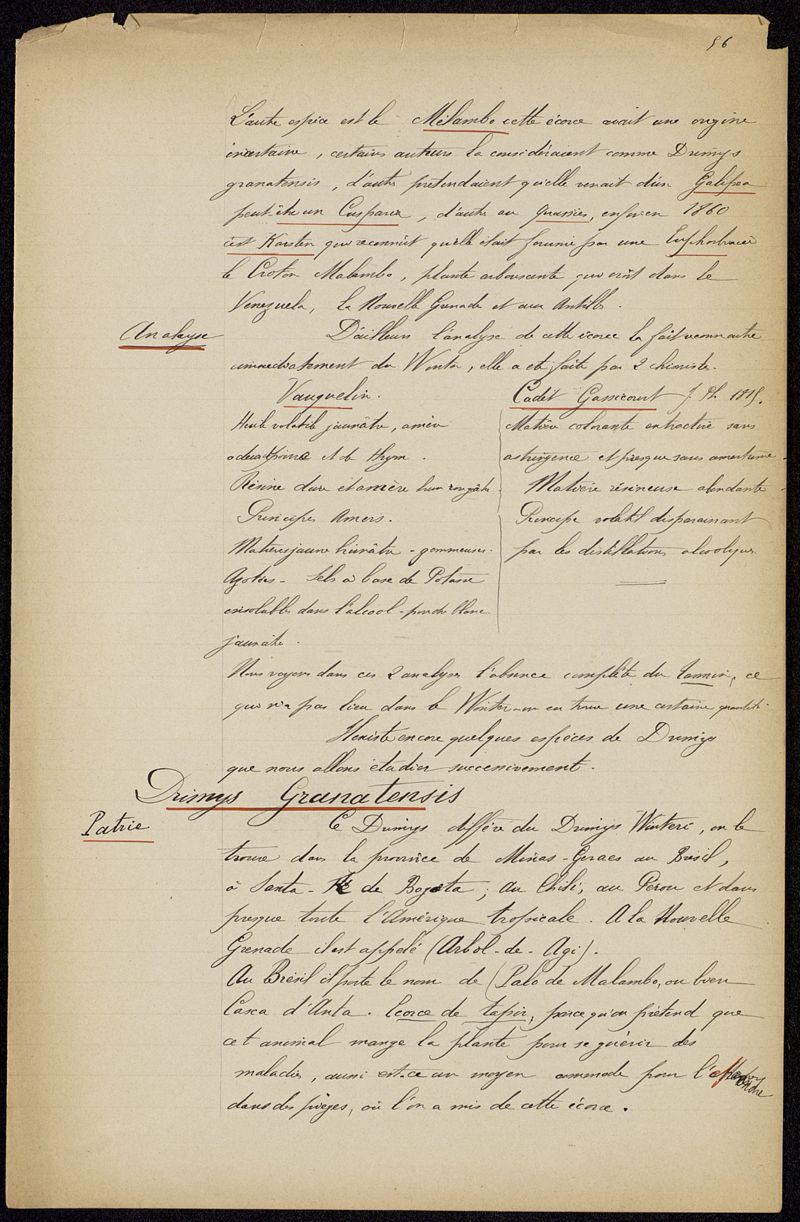 56
L'autre espèce est le Mélambo cette écorce avait une origine
incertaine, certains auteurs la considéraient comme Drimys
granatensis, d'autre prétendaient qu'elle venait d'un Galipea
peut être un Cusparia, d'autre au Quassier, enfin en 1860
c'est Karsten qui reconnût qu'elle était fournie par une Euphorbiacée
le Croton Malambo, plante arborisante qui croit dans le
Venezuela, la Nouvelle Grenade et aux Antilles.
Analyse
D'ailleurs l'analyse de cette écorce la fait reconnaitre
immédiatement du Winter, elle a été faite par 2 chimiste.
Vauquelin.
Huile volatile jaunâtre, amère
odeur Poivre et de Thym.
Résine dure et amère brun rougâtre
Principes Amers.
Matières jaune brunâtre - gommeuses.
Azotées - Sels à base de Potasse
insoluble dans l'alcool - poudre blanc
jaunâtre.
Cadet Gassicourt J. Ph. 1815.
Matière colorante extractive sans
astringence et presque sans amertume
Matière résineuse abondante
Principe volatil disparaissant
par les distillations alcooliques
Nous voyons dans ces 2 analyses l'absence complète du tannin, ce
qui n'a pas lieu dans le Winter - on en trouve une certaine quantité.
Il existe encore quelques espèces de Drimys
que nous allons étudier successivement.
Drimys Granatensis
Patrie
Ce Drimys diffère du Drimys Winteri, on le
trouve dans la province de Minas-Geraes au Brésil,
à Santa-Fé de Bogota; au Chili, au Pérou et dans
presque toute l'Amérique tropicale. A la Nouvelle
Grenade il est appelé (Arbol-de-Agi).
Au Brésil il porte le nom de (Palo de Malambo, ou bien
Casca d'Anta. Ecorce de tapir, parce qu'on prétend que
cet animal mange la plante pour se guérir des
maladies, aussi est-ce un moyen commode pour l'
dans des pièges, où l'on a mis de cette écorce.